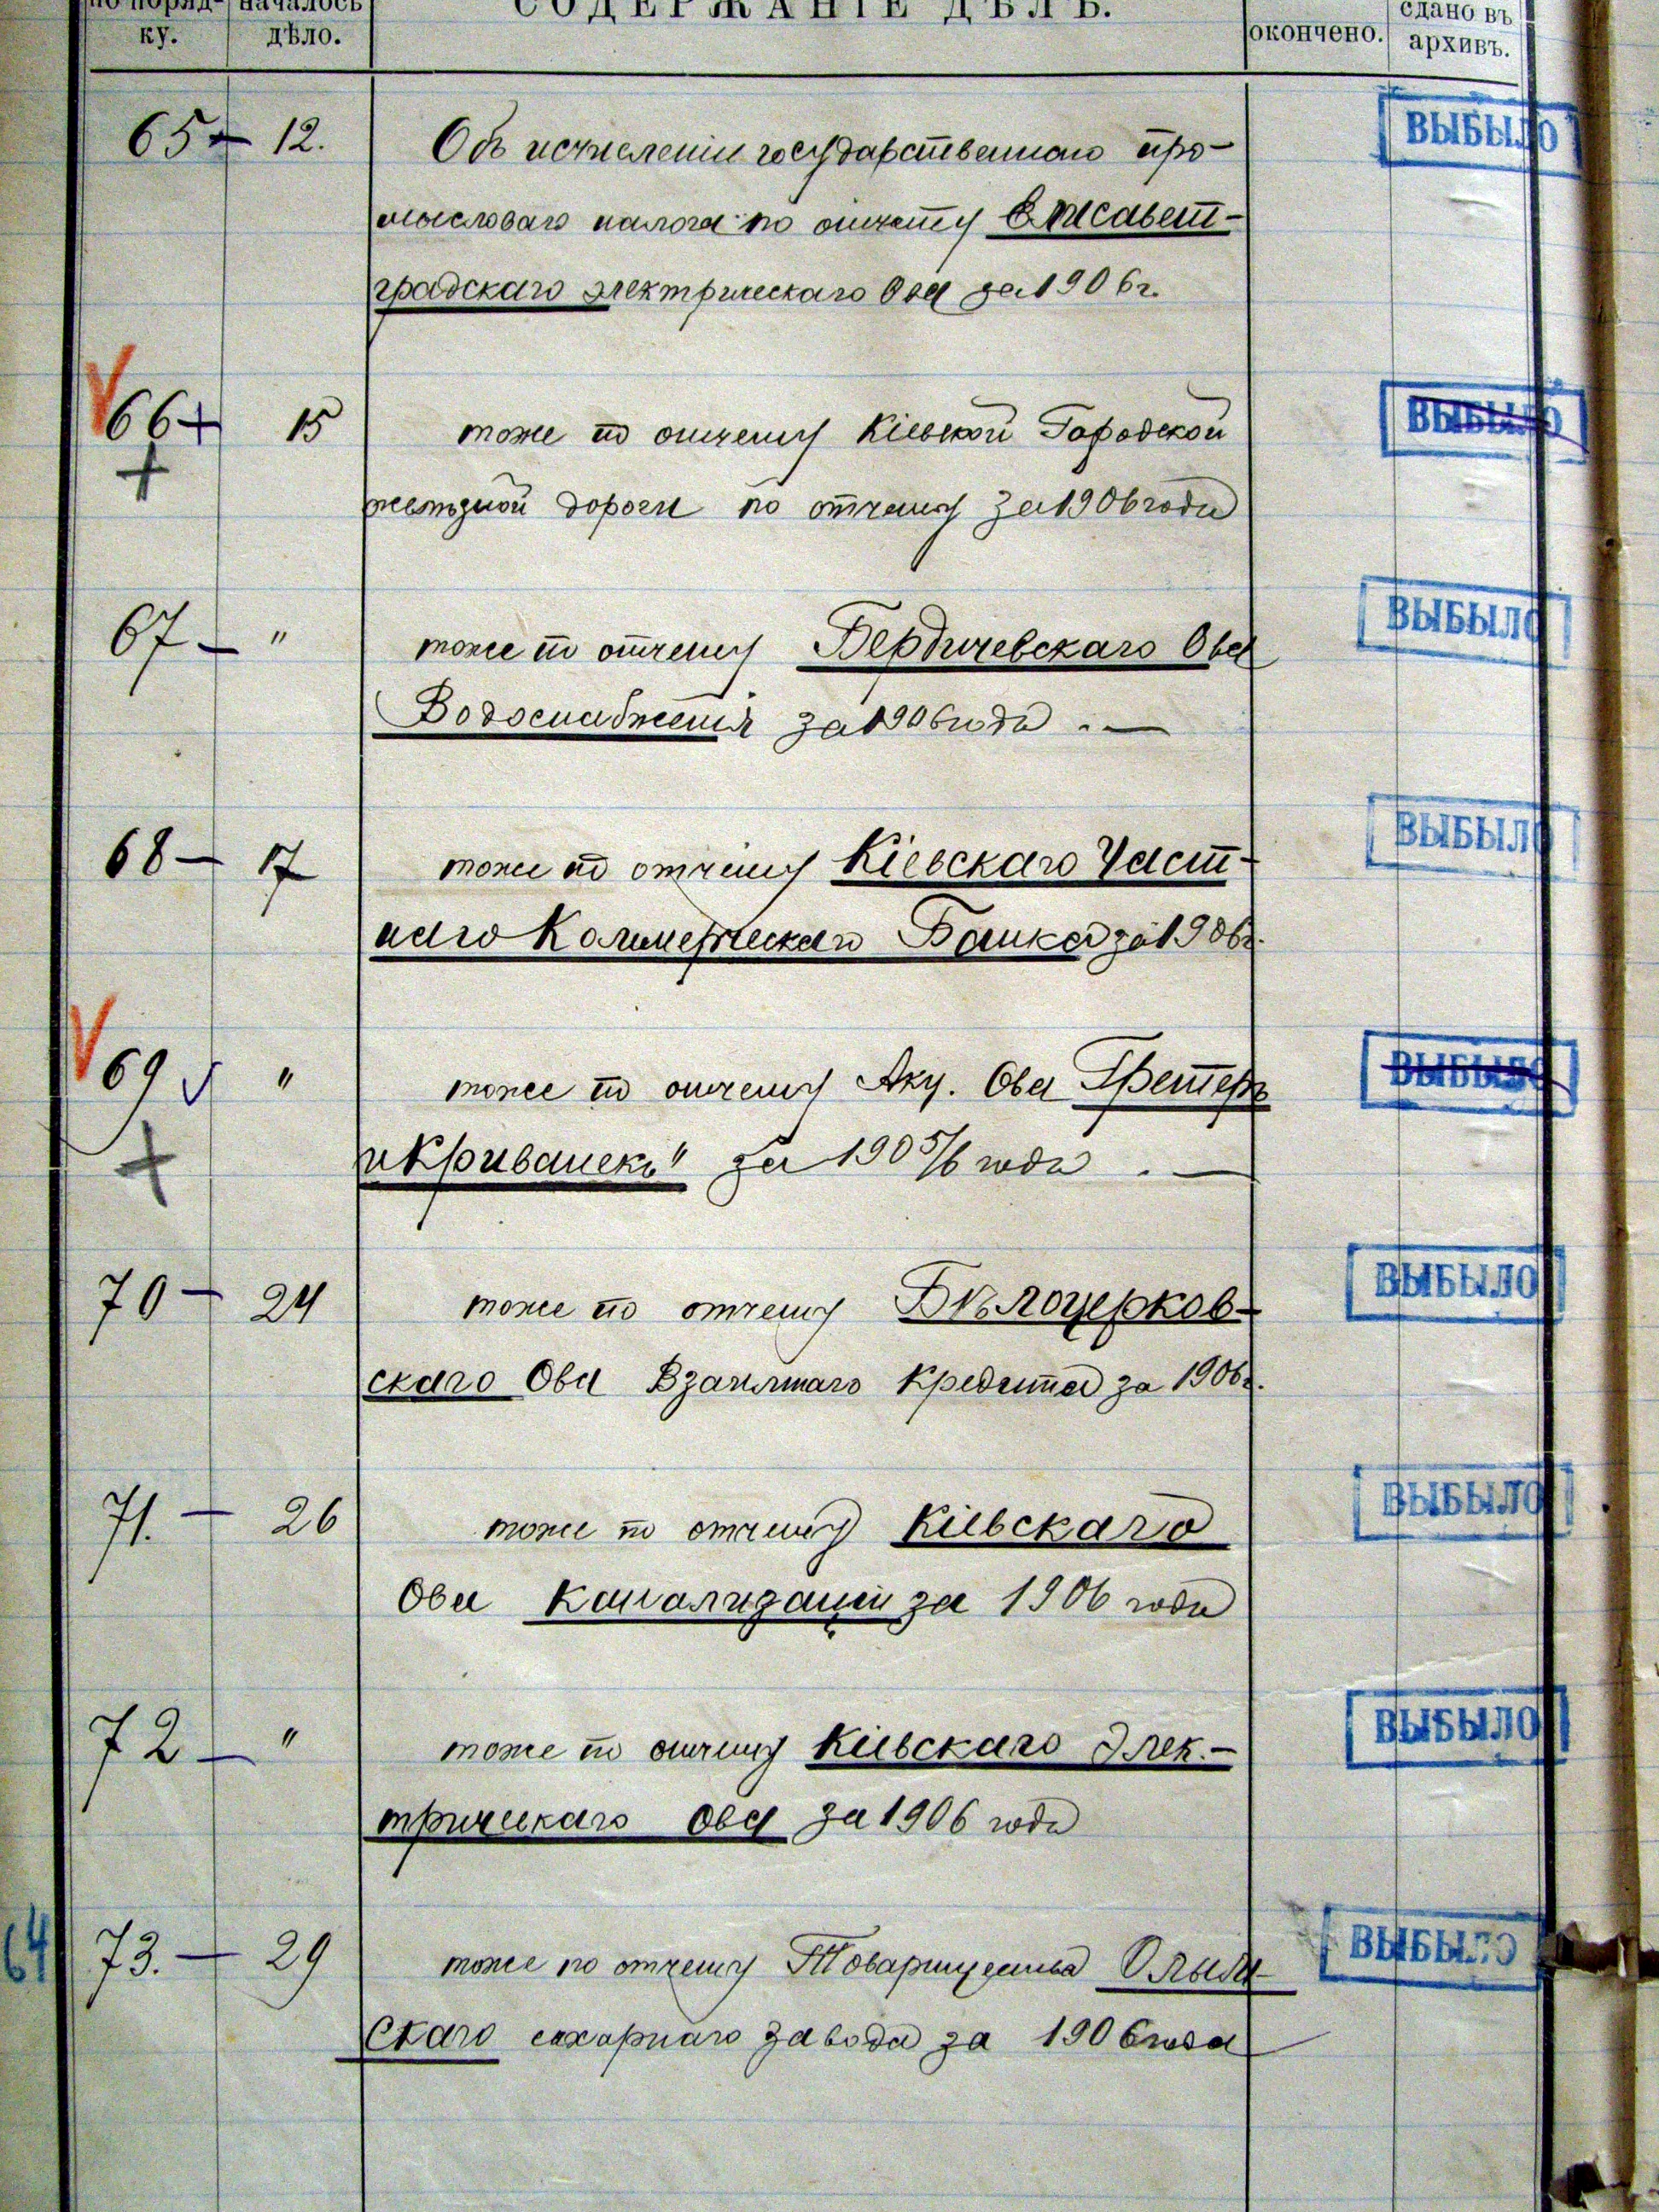 по поряд- началось СОДЕРЖАНІЕ ДѢЛЪ. сдано въ
ку. дѣло. окончено. архивъ.
65 — 12. Объ исчисленіи государственнаго про- ВЫБЫЛО
мысловаго налога по отчету Елисавет-
градскаго электрическаго Ова за 1906 г.
V 66 + 15 тоже по отчету Кіевской Городской ВЫБЫЛО
+
желѣзной дороги по отчету за 1906 года
67 — " тоже по отчету Бердичевскаго Ова ВЫБЫЛО
Водоснабженія за 1906 года . —
68 — 17 тоже по отчету Кіевскаго Част- ВЫБЫЛО
наго Коммерческаго Банка за 1906 г.
V 69 v " тоже по отчету Акц. Ова Гретеръ ВЫБЫЛО
+
и Криванекъ" за 1905/6 года . —
70 — 24 тоже по отчету Бѣлоцерков- ВЫБЫЛО
скаго Ова Взаимнаго Кредита за 1906 г.
71. — 26 тоже по отчету Кіевскаго ВЫБЫЛО
Ова Канализаціи за 1906 года
72 — " тоже по отчету Кіевскаго Элек.- ВЫБЫЛО
трическаго Ова за 1906 года
64 73. — 29 тоже по отчету Товарищества Олын- ВЫБЫЛО
скаго сахарнаго завода за 1906 года